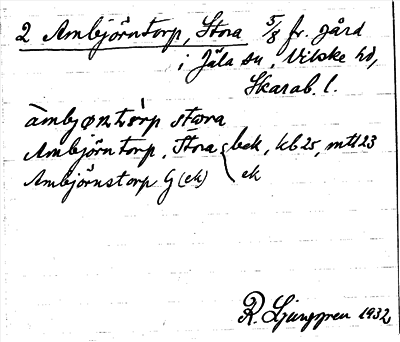 2 Ambjörntorp, Stora 5/8 fr. gård
i Jäla sn, Vilske hd,
Skarab. l.
àmbjøntòrp stora
Ambjörntorp, Stora beck, kb 25, mtl 23
Ambjörnstorp G (ek) ek
R. Ljunggren 1932